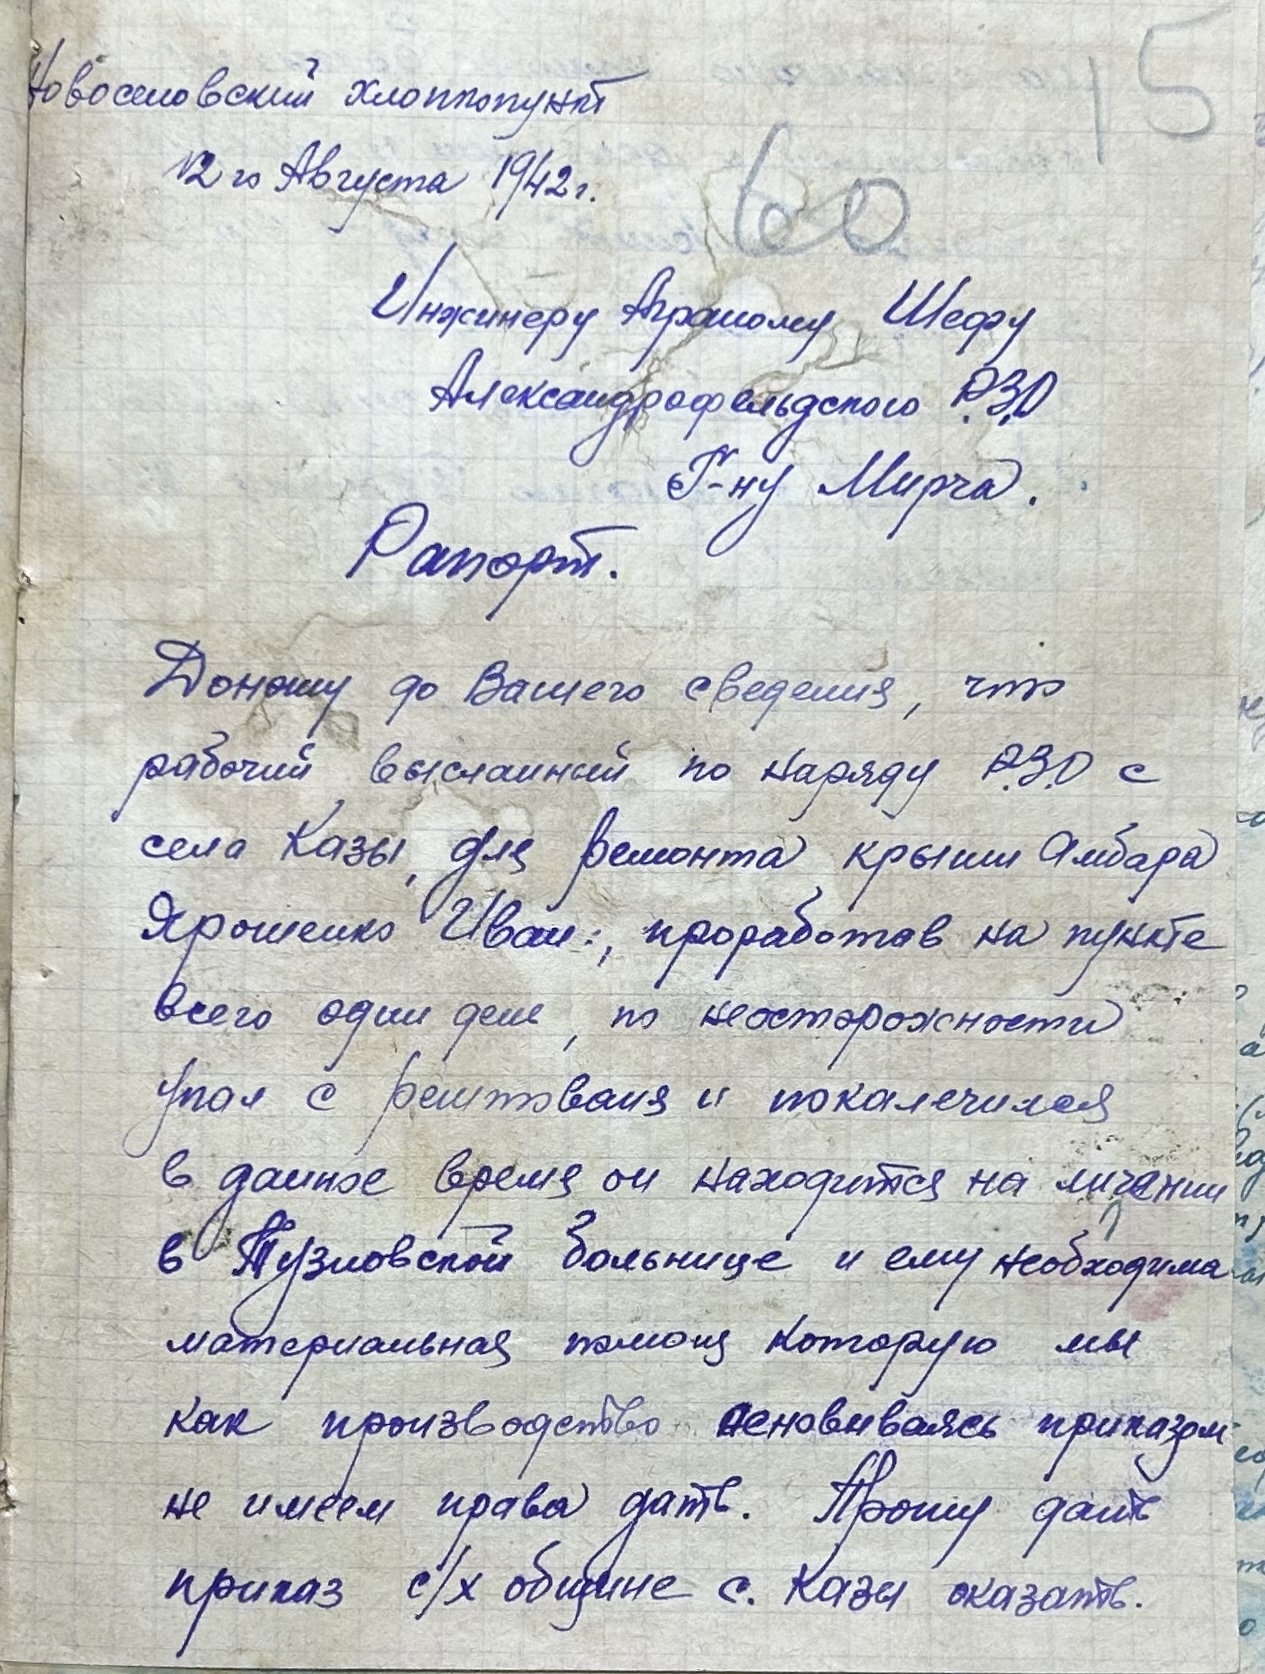 15
Новоселовский хлоппопункт
12 го Августа 1942 г.
60
Инжинеру Аграному Шефу
Александрофельдского Р.З.О
Г-ну Мирча.
Рапорт.
Доношу до Вашего сведения, что
рабочий высланный по наряду Р.З.О с
села Казы, для ремонта крыши Амбара
Ярошенко Иван:, проработав на пункте
всего один ден, по неосторожности
упал с рештования и покалечился
в данное время он находится на личении
в Тузловской больнице и ему необходима
материальная помощ которую мы
как производство основываясь приказом
не имеем права дать. Прошу дать
приказ с/х общине с. Казы оказать.